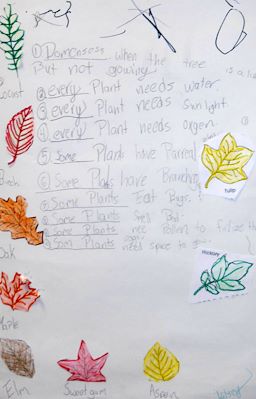 ① Domensess when the tree
is alive
But not growing
② every Plant needs water.
③ every Plant needs sunlight.
④ every Plant needs orgen.
⑤ Some Plants have Parreal
⑥ Some Plats have Branching
⑦ Some Plants Eat Bugs.
⑧ Some Plants Smell Bad.
⑨ Some Plants nee Pollen to
Som Plants need space to
ocust
Beech
Oak
Maple
Elm
Sweetgum
Aspen
Tulip
Hickory